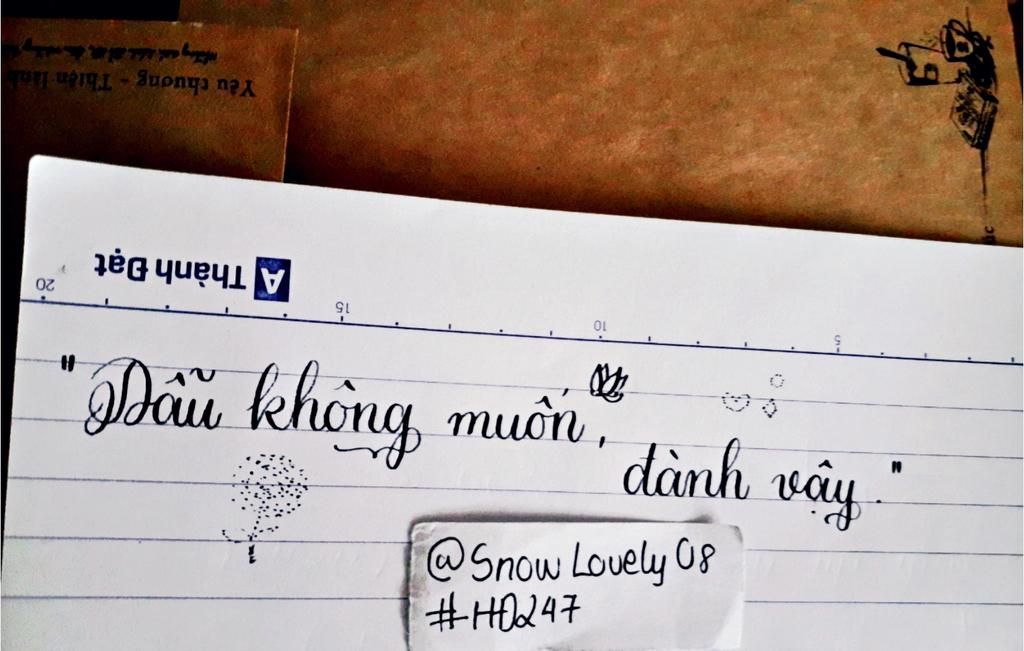 Yêu thương - Thiện lành
A Thành Đạt
20 15 10 5
"Dẫu không muốn,
đành vậy."
@Snow Lovely 08
#HD247